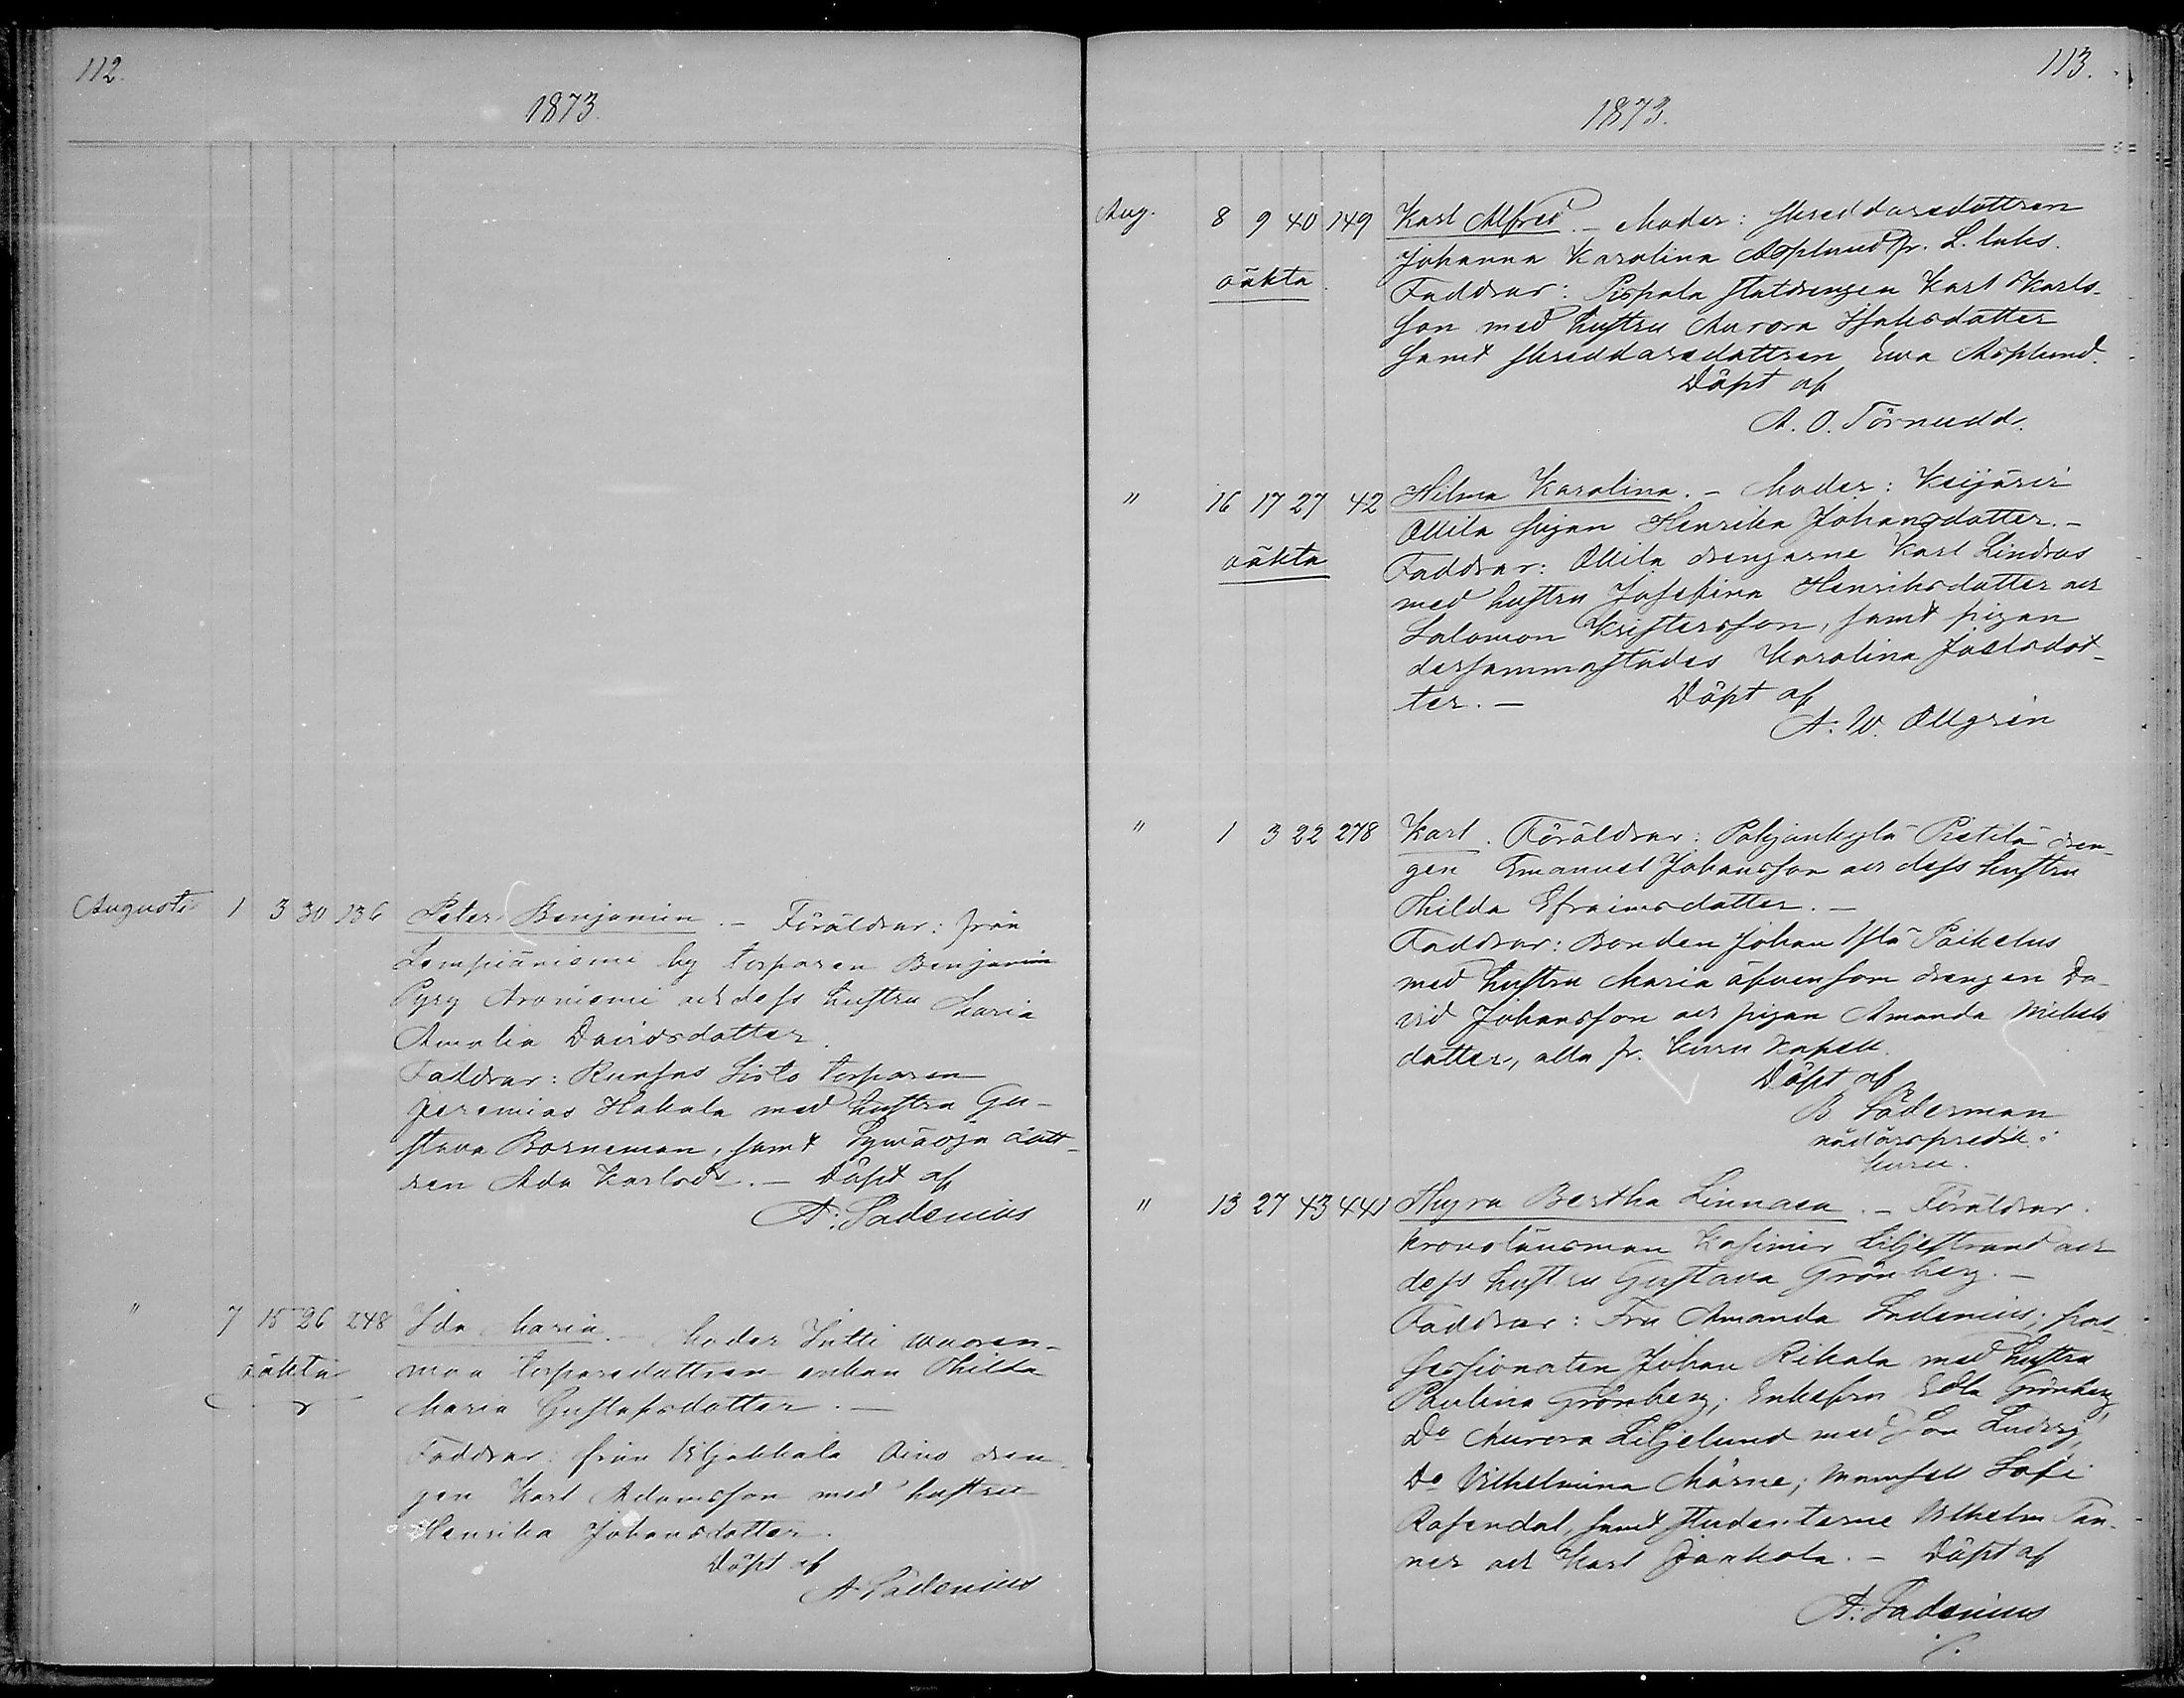 112.
1873.
Augusti 1 3 30 136 Peter Benjamin. – Föräldrar: från
by torparen Benjamin
Pyry Aroniemi och dess hustru Maria
Amalia Davidsdotter.
Faddrar: Kunsus Sisto torparen
Jeremias Hakala med hustru Gu-
stava Borneman, samt dott-
ren Ada Karlsdr. – Döpt af
A. Ladenius
" 7 15 26 248 Ida Maria. – Moder Vuoren-
maa torparedottren enkan Thilda
oäkta
Maria Gustafsdotter. –
Faddrar: från Viljakkala dren-
gen Karl Adamsson med hustru
Henrika Johansdotter.
Döpt af
A Ladenius
113.
1873.
Aug. 8 9 40 149 Karl Alfred. – Moder: skreddaredottren
Johanna Karolina Asplund fr. L. luks.
oäkta.
Faddrar: Pispala statdrengen Karl Karls-
son med hustru Aurora Isaksdotter
samt skreddaredottren Eva Asplund.
Döpt af
A. O. Törnudd.
" 16 17 27 42 Hilma Karolina. – Moder: Keijäri
Ollila pigan Henrika Johansdotter. –
oäkta
Faddrar: Ollila drengarne Karl Lindroos
med hustru Josefina Henriksdotter och
Salomon Kristersson, samt pigan
dersammastädes Karolina Joelsdot-
ter. – Döpt af
A. W. Ollgrén
" 1 3 22 278 Karl. Föräldrar: Pohjankylä Pietilä dren-
gen Emanuel Johansson och dess hustru
Thilda Efraimsdotter. –
Faddrar: Bonden Johan Paikelus
med hustru Maria äfvensom drengen Da-
vid Johansson och pigan Amanda Mikels
dotter, alla fr. Kuru Kapell.
Döpt af
B Söderman
nådårspredik. i
Kuru.
" 13 27 43 441 Thyra Bertha Linnaea. – Föräldrar.
Kronolänsman Kasimir Liljestrand och
dess hustru Gustava Grönberg. –
Faddrar: Fru Amanda Indenius; pos-
sessionaten Johan Rikala med hustru
Paulina Grönberg; Enkefru Edla Grönberg,
Do Aurora Liljelund med son Ludvig,
Do Vilhelmina Mörne; Mamsell Sofi
Rosendal, samt studenterne Vilhelm Tan-
ner och Karl Jaakola. – Döpt af
A. Ladenius